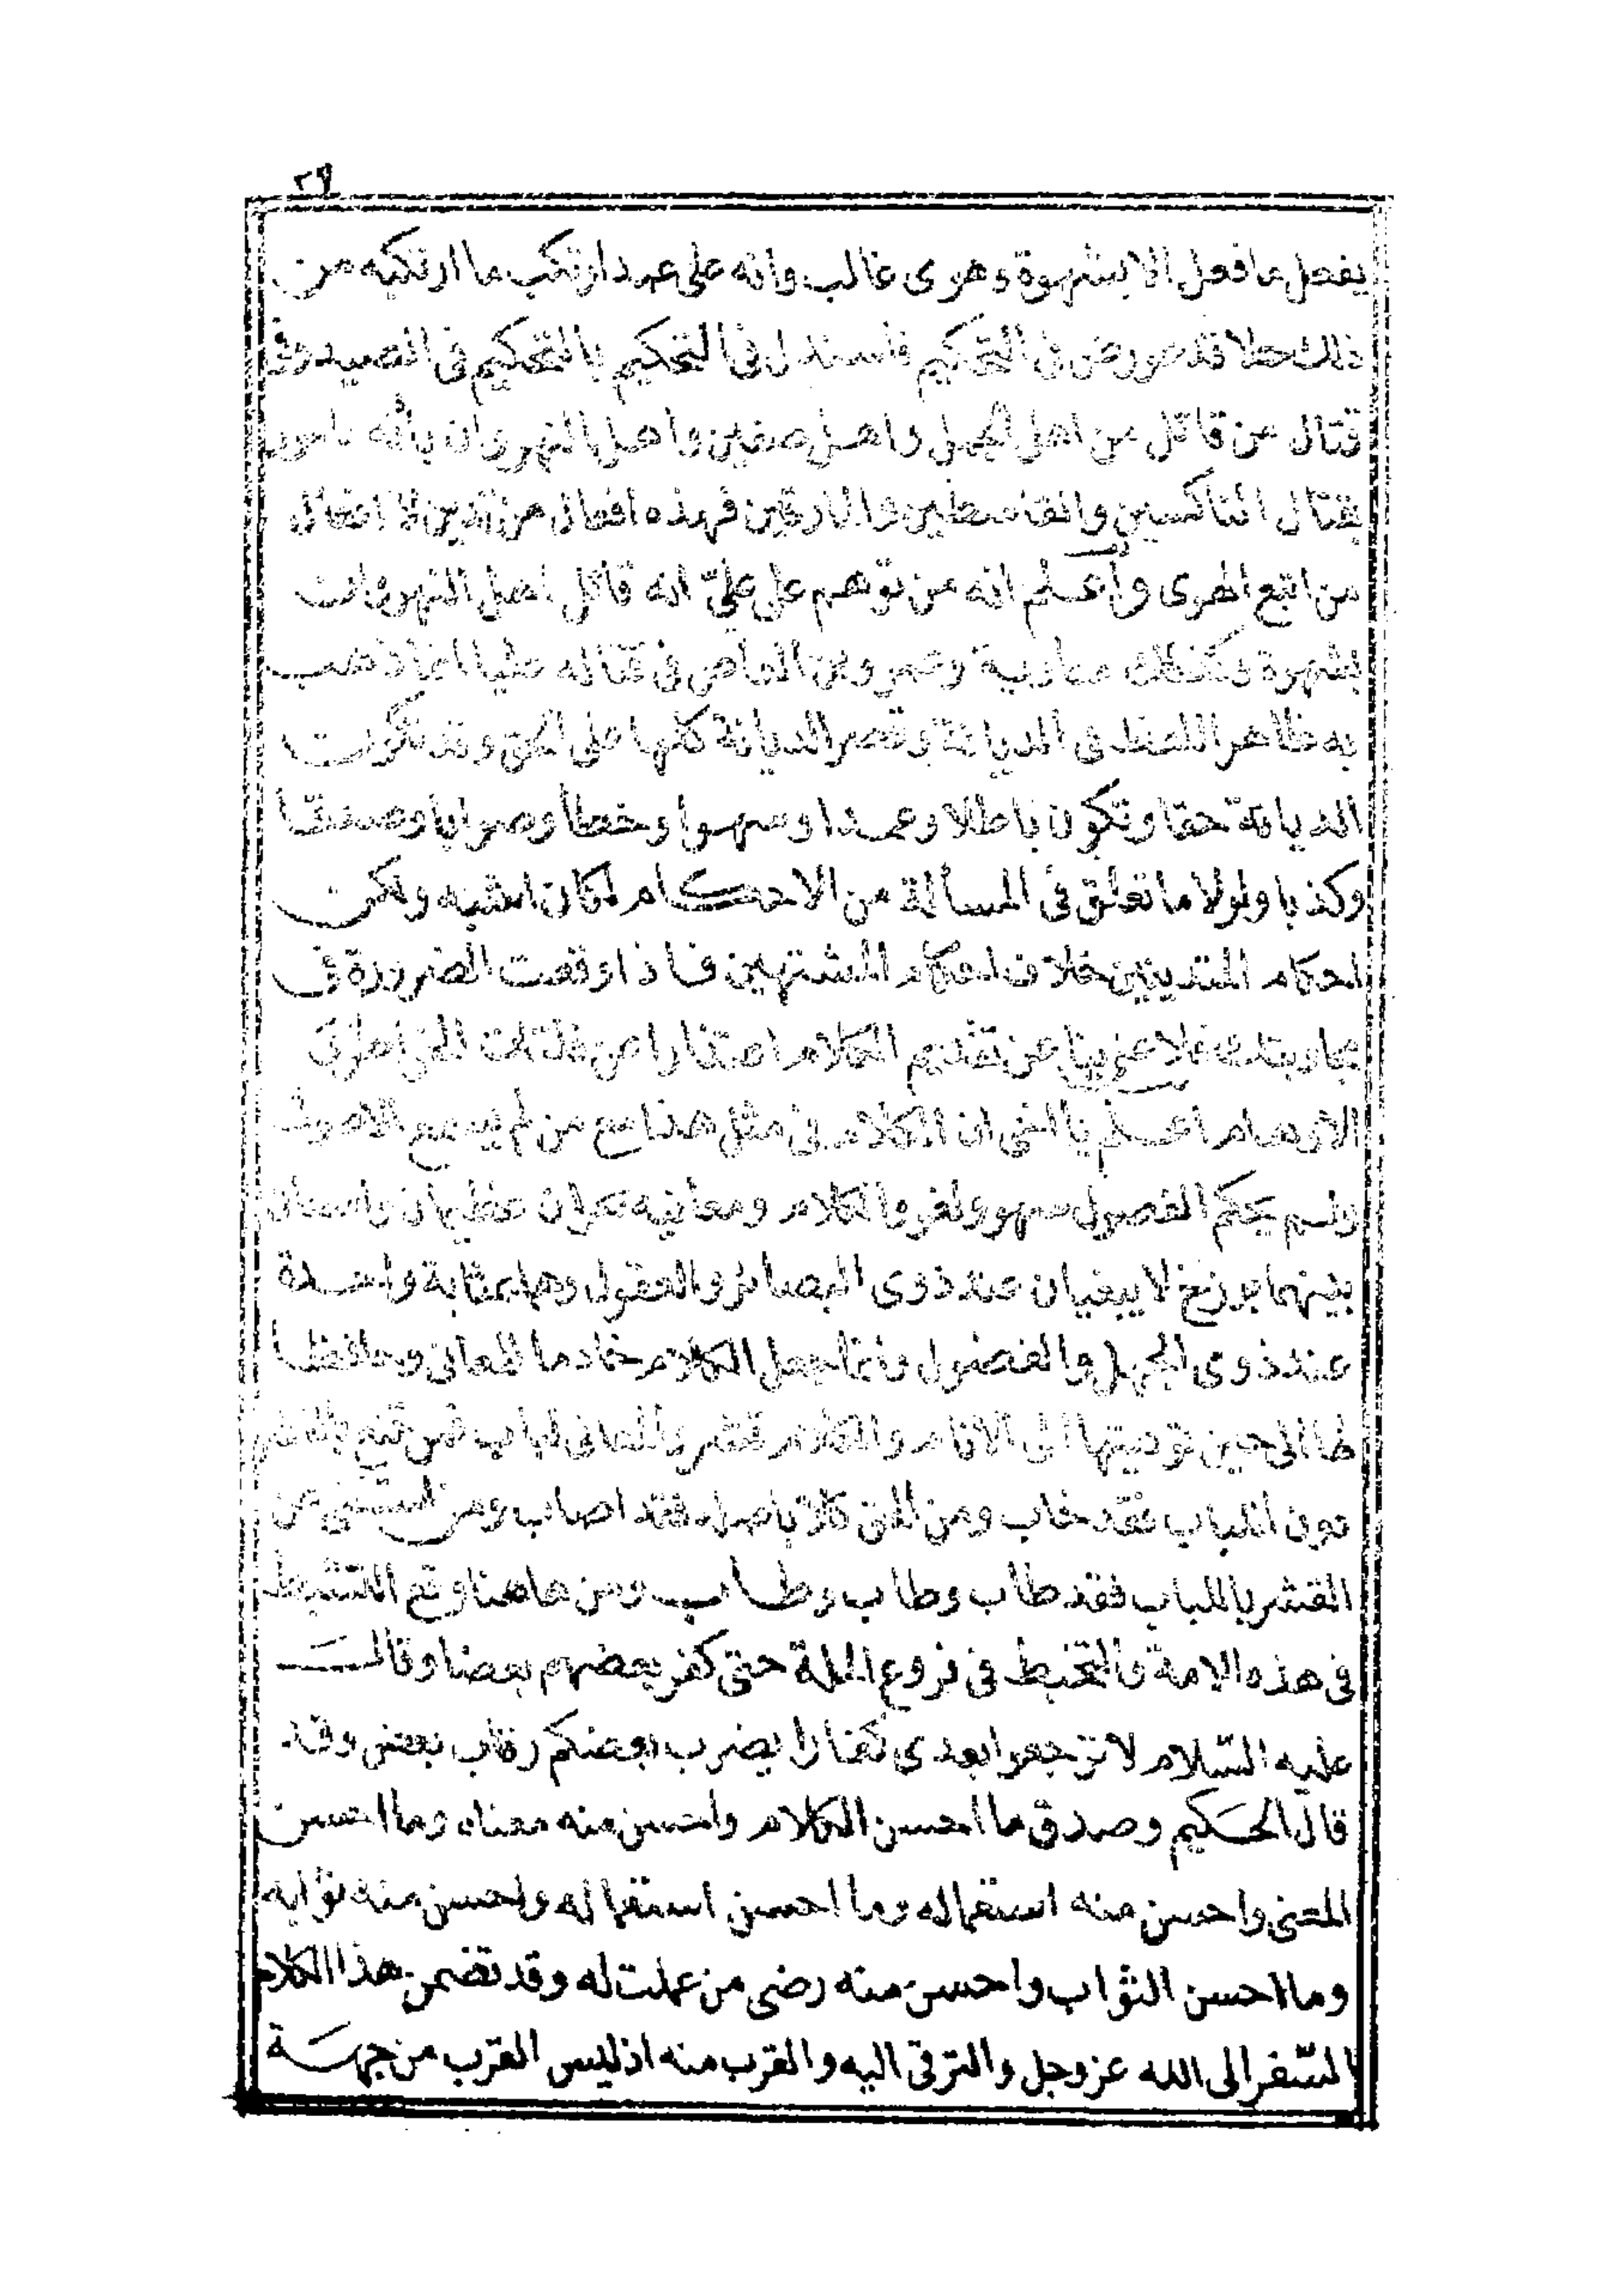 ٢٩
يفعل ما فعل الا بشهوة وهوى غالب وانه على عمد ارتكب ما ارتكبه من
ذلك حلا قد عورض فى التحكيم فاستدل فى التحكيم بالتحكيم فى الصيد وفى
قتال من قاتل من اهل الجمل واهل صفين واهل النهروان بأنه مامور
بقتال الناكسين والقاسطين والمارقين فهذه افعال من تدين لا افعال
من اتبع الهوى وأعلم انه من توهم على علىّ انه قاتل اهل النهروان
بشهوة وكذلك معاوية وعمرو بن العاص فى قتاله عليا انما ذهب
به ظاهر اللفظ فى الديانة وقصر الديانة كلها على الحق وقد تكون
الديانة حقا وتكون باطلا وعمدا وسهوا وخطأ وصوابا وصدقا
وكذبا ولولا ما تعلق فى المسألة من الاحكام لكان اشبه ولكن
احكام المتدينين خلاف احكام المشتهين فاذا وقعت الضرورة فى
فلا عن تقديم الكلام اعتذارا من فلتات الخواطر فى
الاوهام اعلم يا اخى ان الكلام فى مثل هذا مع من لم الاصول
ولم يحكم الفصول سهو ولغو والكلام ومعانيه
بينهما برزخ لا يبغيان عند ذوى البصائر والعقول وهما بمثابة واحدة
عند ذوى الجهل والفضول وانما جعل الكلام خادما للمعانى وحافظا
لها الى حين توديتها الى الانام والكلام قشر والمعانى لباب فمن بالقشر
دون اللباب فقد خاب ومن كلا باصله فقد اصاب ومن استغنى عن
القشر باللباب فقد طاب وطاب وطاب ومن هاهنا وقع
فى هذه الامة والتخبط فى فروع الملة حتى كفر بعضهم بعضا وقال
عليه السّلام لا ترجعوا بعدى كفارا يضرب بعضكم رقاب بعض وقد
قال الحكيم وصدق ما احسن الكلام واحسن منه معناه وما احسن
المعنى واحسن منه استعماله وما احسن استعماله واحسن منه ثوابه
وما احسن الثواب واحسن منه رضى من عملت له وقد تضمن هذا الكلام
السّفر الى الله عز وجل والترقى اليه والقرب منه اذ ليس القرب من جهة